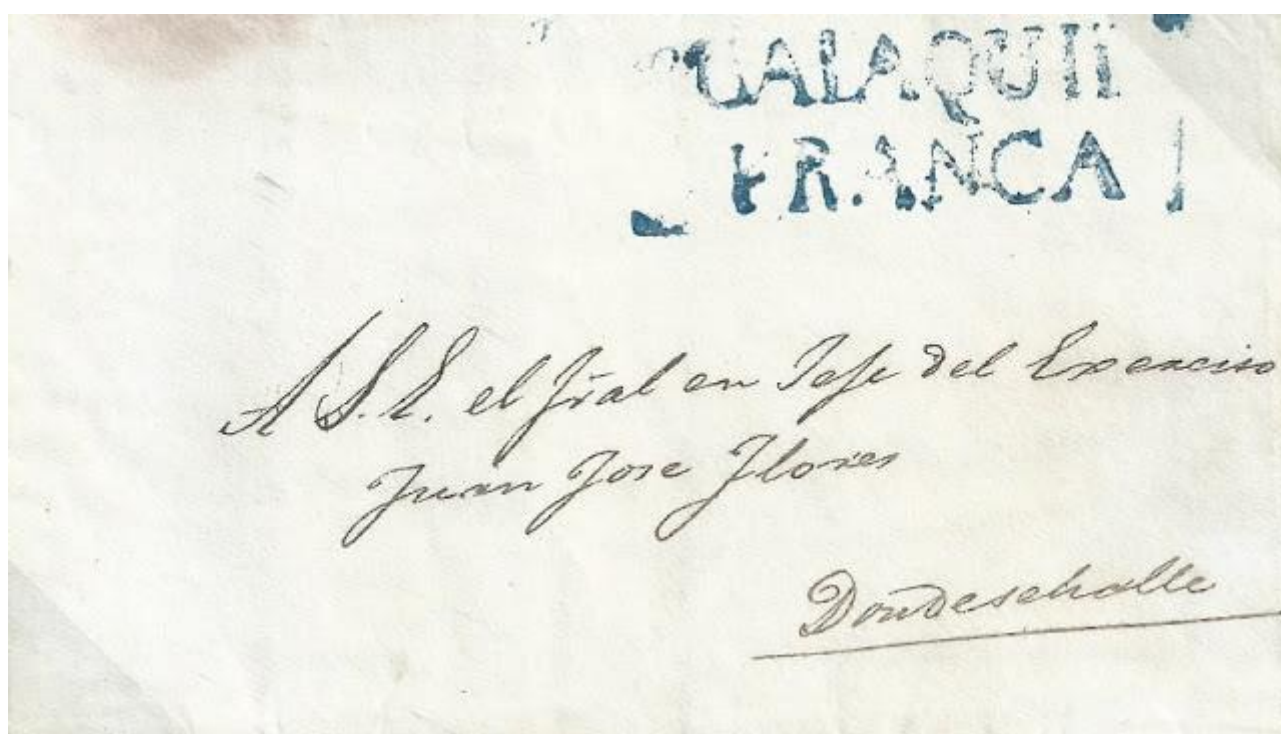 GALAQUII
FRANCA
A S. E. el Jral en Jefe del Exercito
Juan Jose Flores
Dondesehalle